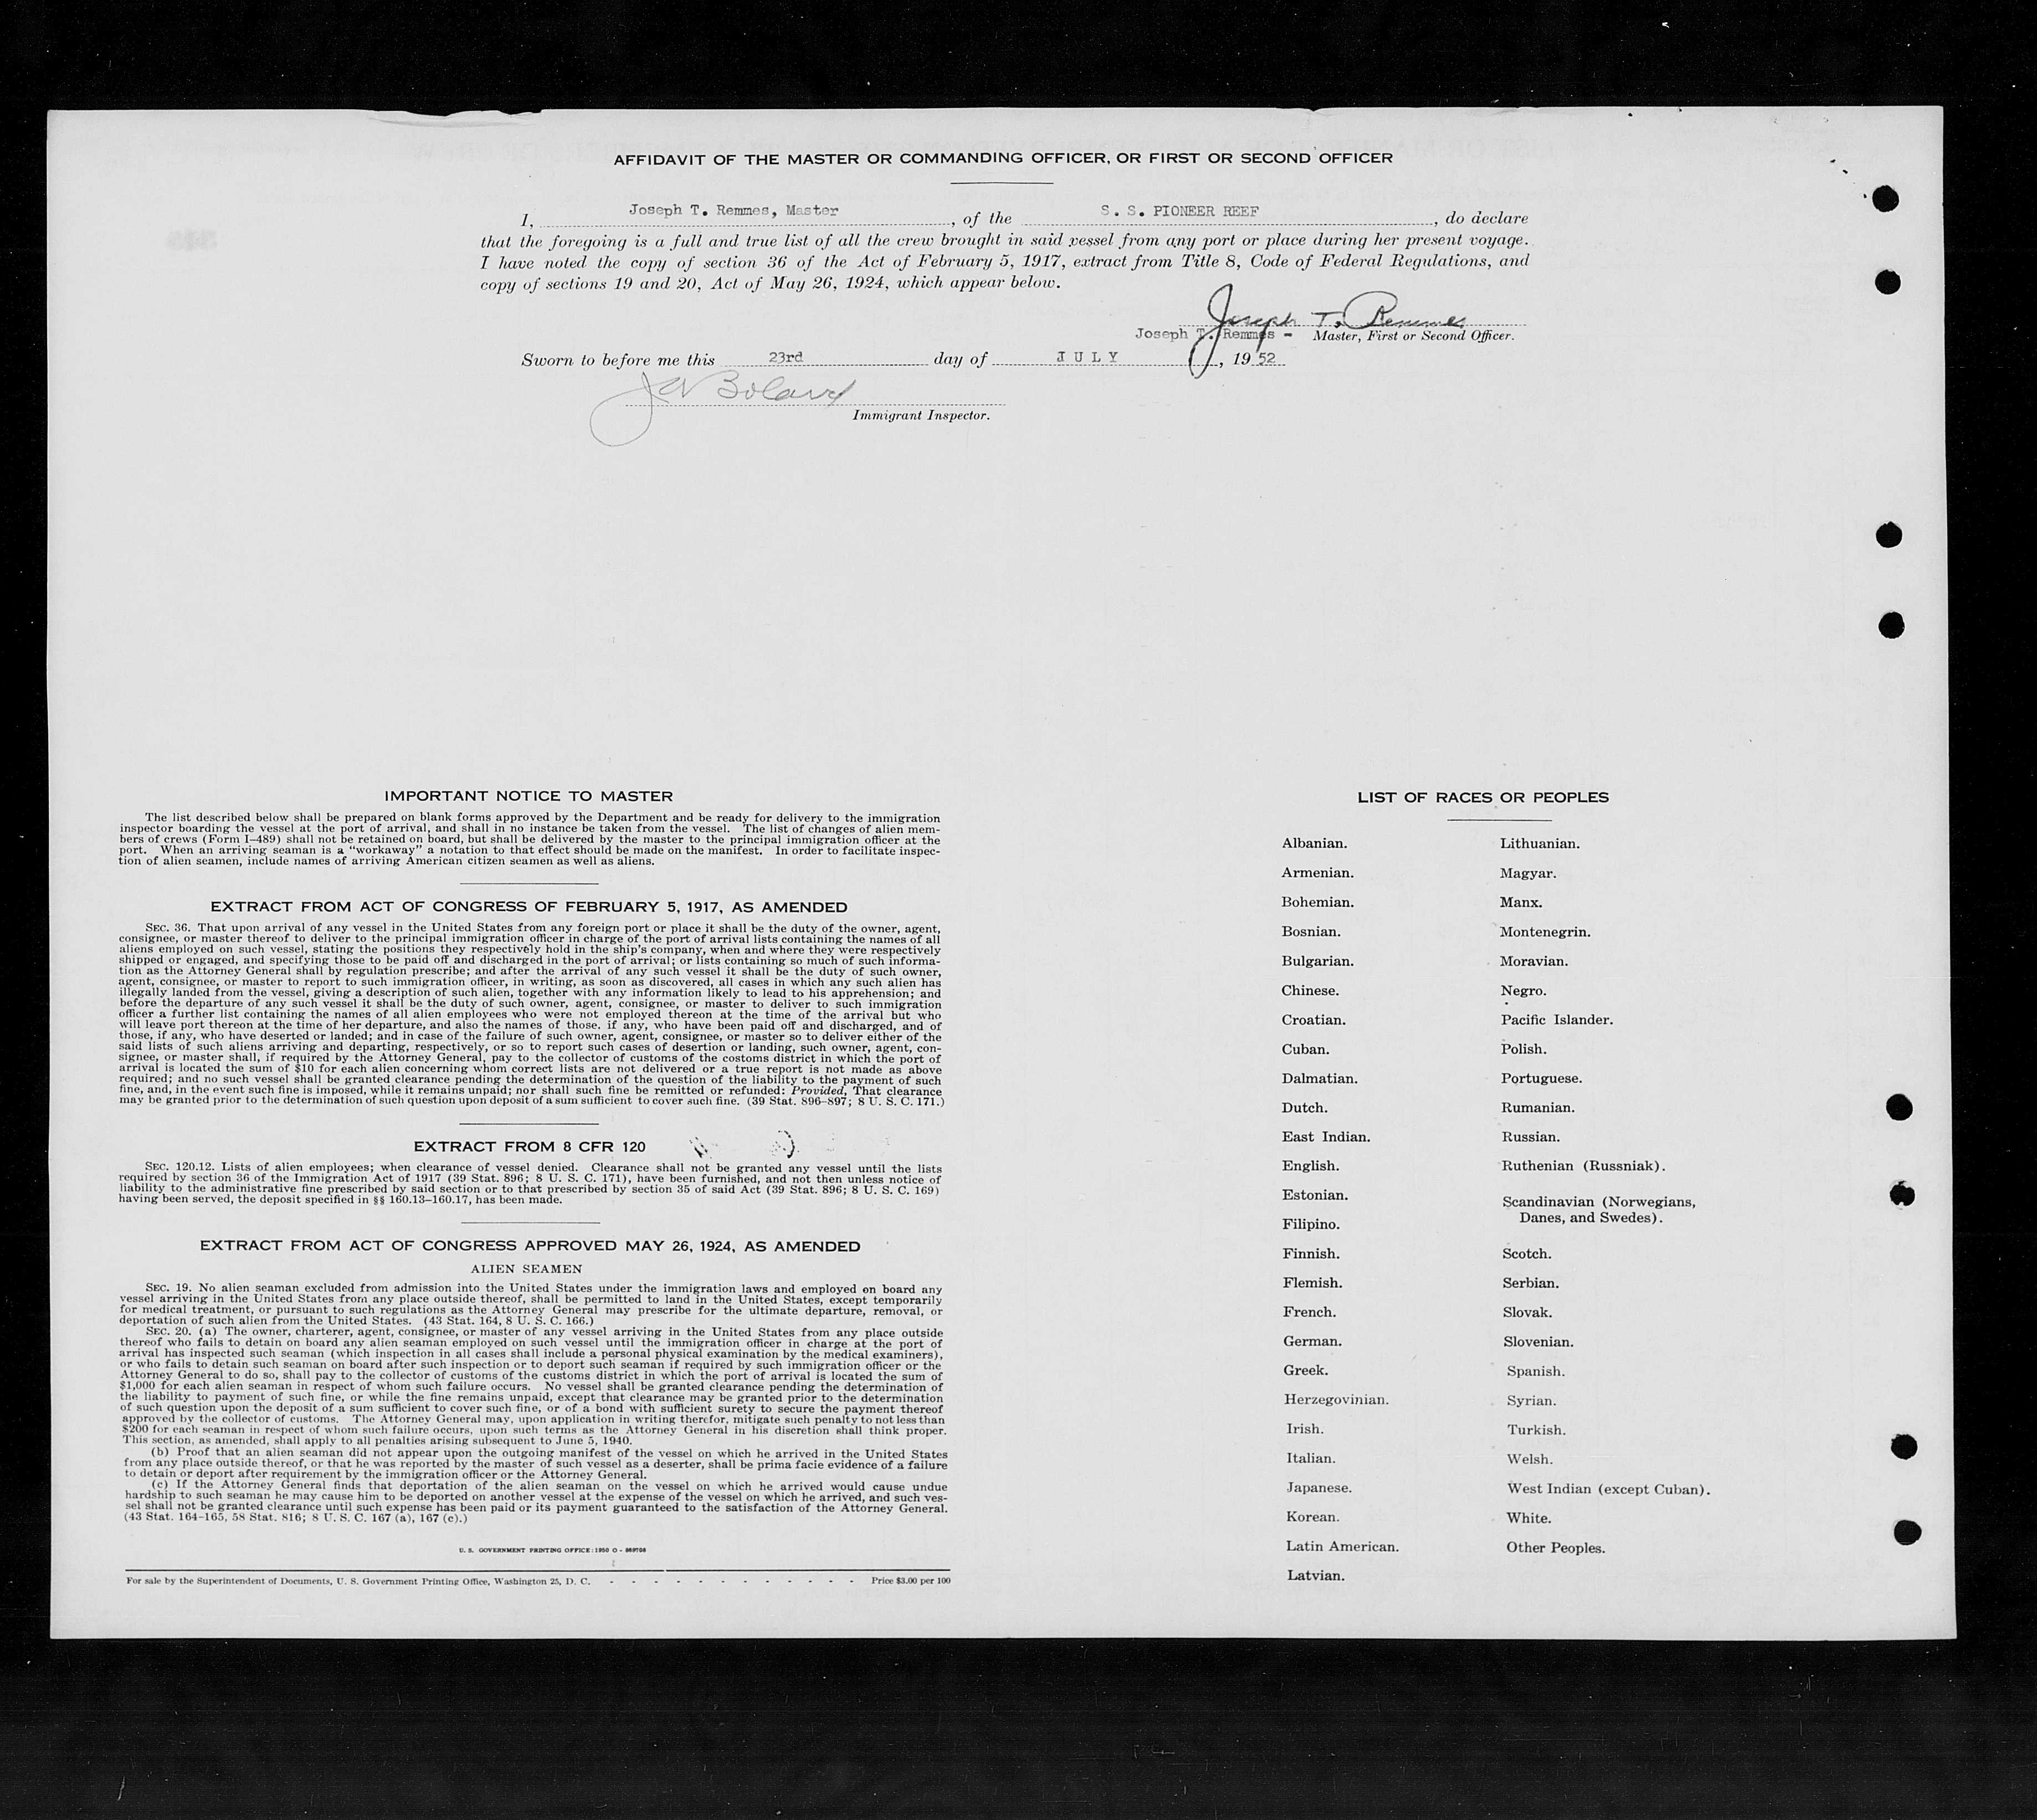 AFFIDAVIT OF THE MASTER OR COMMANDING OFFICER, OR FIRST OR SECOND OFFICER
I, Joseph T. Remmes, Master, of the S. S. PIONEER REEF, do declare
that the foregoing is a full and true list of all the crew brought in said vessel from any port or place during her present voyage.
I have noted the copy of section 36 of the Act of February 5, 1917, extract from Title 8, Code of Federal Regulations, and
copy of sections 19 and 20, Act of May 26, 1924, which appear below.
Joseph T. Remmes
Joseph T. Remmes - Master, First or Second Officer.
Sworn to before me this 23rd day of JULY, 1952
Boland
Immigrant Inspector.
IMPORTANT NOTICE TO MASTER
The list described below shall be prepared on blank forms approved by the Department and be ready for delivery to the immigration
inspector boarding the vessel at the port of arrival, and shall in no instance be taken from the vessel. The list of changes of alien mem-
bers of crews (Form I-489) shall not be retained on board, but shall be delivered by the master to the principal immigration officer at the
port. When an arriving seaman is a “workaway” a notation to that effect should be made on the manifest. In order to facilitate inspec-
tion of alien seamen, include names of arriving American citizen seamen as well as aliens.
EXTRACT FROM ACT OF CONGRESS OF FEBRUARY 5, 1917, AS AMENDED
SEC. 36. That upon arrival of any vessel in the United States from any foreign port or place it shall be the duty of the owner, agent,
consignee, or master thereof to deliver to the principal immigration officer in charge of the port of arrival lists containing the names of all
aliens employed on such vessel, stating the positions they respectively hold in the ship's company, when and where they were respectively
shipped or engaged, and specifying those to be paid off and discharged in the port of arrival; or lists containing so much of such informa-
tion as the Attorney General shall by regulation prescribe; and after the arrival of any such vessel it shall be the duty of such owner,
agent, consignee, or master to report to such immigration officer, in writing, as soon as discovered, all cases in which any such alien has
illegally landed from the vessel, giving a description of such alien, together with any information likely to lead to his apprehension; and
before the departure of any such vessel it shall be the duty of such owner, agent, consignee, or master to deliver to such immigration
officer a further list containing the names of all alien employees who were not employed thereon at the time of the arrival but who
will leave port thereon at the time of her departure, and also the names of those. if any, who have been paid off and discharged, and of
those, if any, who have deserted or landed; and in case of the failure of such owner, agent, consignee, or master so to deliver either of the
said lists of such aliens arriving and departing, respectively, or so to report such cases of desertion or landing, such owner, agent, con-
signee, or master shall, if required by the Attorney General, pay to the collector of customs of the costoms district in which the port of
arrival is located the sum of $10 for each alien concerning whom correct lists are not delivered or a true report is not made as above
required; and no such vessel shall be granted clearance pending the determination of the question of the liability to the payment of such
fine, and, in the event such fine is imposed, while it remains unpaid; nor shall such fine be remitted or refunded: Provided, That clearance
may be granted prior to the determination of such question upon deposit of a sum sufficient to cover such fine. (39 Stat. 896-897; 8 U. S. C. 171.)
EXTRACT FROM 8 CFR 120
SEC. 120.12. Lists of alien employees; when clearance of vessel denied. Clearance shall not be granted any vessel until the lists
required by section 36 of the Immigration Act of 1917 (39 Stat. 896; 8 U. S. C. 171), have been furnished, and not then unless notice of
liability to the administrative fine prescribed by said section or to that prescribed by section 35 of said Act (39 Stat. 896; 8 U. S. C. 169)
having been served, the deposit specified in §§ 160.13-160.17, has been made.
EXTRACT FROM ACT OF CONGRESS APPROVED MAY 26, 1924, AS AMENDED
ALIEN SEAMEN
SEC. 19. No alien seaman excluded from admission into the United States under the immigration laws and employed on board any
vessel arriving in the United States from any place outside thereof, shall be permitted to land in the United States, except temporarily
for medical treatment, or pursuant to such regulations as the Attorney General may prescribe for the ultimate departure, removal, or
deportation of such alien from the United States. (43 Stat. 164, 8 U. S. C. 166.)
SEC. 20. (a) The owner, charterer, agent, consignee, or master of any vessel arriving in the United States from any place outside
thereof who fails to detain on board any alien seaman employed on such vessel until the immigration officer in charge at the port of
arrival has inspected such seaman (which inspection in all cases shall include a personal physical examination by the medical examiners),
or who fails to detain such seaman on board after such inspection or to deport such seaman if required by such immigration officer or the
Attorney General to do so, shall pay to the collector of customs of the customs district in which the port of arrival is located the sum of
$1,000 for each alien seaman in respect of whom such failure occurs. No vessel shall be granted clearance pending the determination of
the liability to payment of such fine, or while the fine remains unpaid, except that clearance may be granted prior to the determination
of such question upon the deposit of a sum sufficient to cover such fine, or of a bond with sufficient surety to secure the payment thereof
approved by the collector of customs. The Attorney General may, upon application in writing therefor, mitigate such penalty to not less than
$200 for each seaman in respect of whom such failure occurs, upon such terms as the Attorney General in his discretion shall think proper.
This section, as amended, shall apply to all penalties arising subsequent to June 5, 1940.
(b) Proof that an alien seaman did not appear upon the outgoing manifest of the vessel on which he arrived in the United States
from any place outside thereof, or that he was reported by the master of such vessel as a deserter, shall be prima facie evidence of a failure
to detain or deport after requirement by the immigration officer or the Attorney General.
(c) If the Attorney General finds that deportation of the alien seaman on the vessel on which he arrived would cause undue
hardship to such seaman he may cause him to be deported on another vessel at the expense of the vessel on which he arrived, and such ves-
sel shall not be granted clearance until such expense has been paid or its payment guaranteed to the satisfaction of the Attorney General.
(43 Stat. 164-165, 58 Stat. 816; 8 U. S. C. 167 (a), 167 (c).)
U. S. GOVERNMENT PRINTING OFFICE: 1950 O - 869708
For sale by the Superintendent of Documents, U. S. Government Printing Office, Washington 25, D. C. - - - - - - - - - - - - - Price $3.00 per 100
LIST OF RACES OR PEOPLES
Albanian.
Armenian.
Bohemian.
Bosnian.
Bulgarian.
Chinese.
Croatian.
Cuban.
Dalmatian.
Dutch.
East Indian.
English.
Estonian.
Filipino.
Finnish.
Flemish.
French.
German.
Greek.
Herzegovinian.
Irish.
Italian.
Japanese.
Korean.
Latin American.
Latvian.
Lithuanian.
Magyar.
Manx.
Montenegrin.
Moravian.
Negro.
Pacific Islander.
Polish.
Portuguese.
Rumanian.
Russian.
Ruthenian (Russniak).
Scandinavian (Norwegians,
Danes, and Swedes).
Scotch.
Serbian.
Slovak.
Slovenian.
Spanish.
Syrian.
Turkish.
Welsh.
West Indian (except Cuban).
White.
Other Peoples.